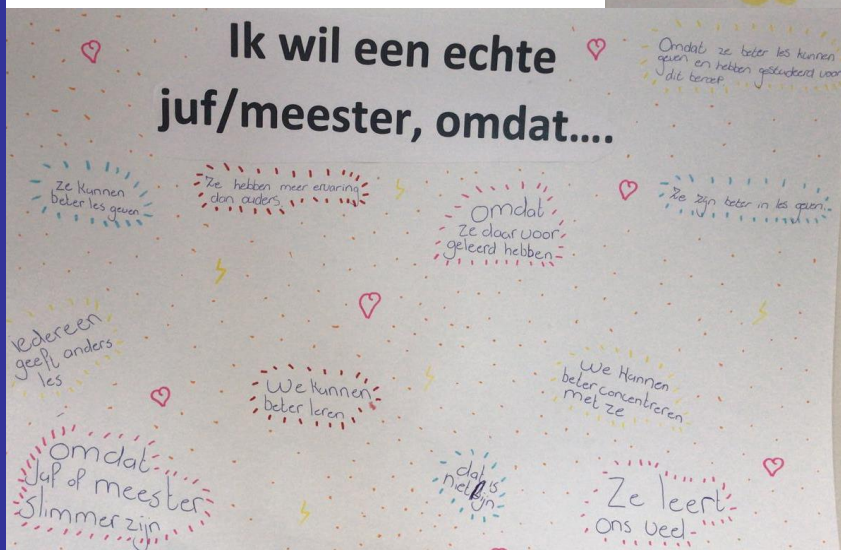 Ik wil een echte
juf/meester, omdat....
Omdat ze beter les kunnen
geven en hebben gestudeerd voor
dit beroep
ze kunnen
beter les geven
Ze hebben meer ervaring
dan ouders
Omdat
ze daar voor
geleerd hebben
Ze zijn beter in les geven
iedereen
geeft anders
les
We kunnen
beter leren
We kunnen
beter concentreren
met ze
omdat
Juf of meester
slimmer zijn
dat is
niet fijn
Ze leert
ons veel